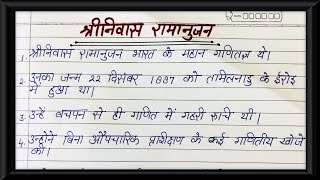 श्रीनिवास रामानुजन
1. श्रीनिवास रामानुजन भारत के महान गणितज्ञ थे।
2. उनका जन्म 22 दिसंबर 1887 को तमिलनाडु के ईरोड
में हुआ था।
3. उन्हें बचपन से ही गणित में गहरी रुचि थी।
4. उन्होंने बिना औपचारिक प्रशिक्षण के कई गणितीय खोजें
की।